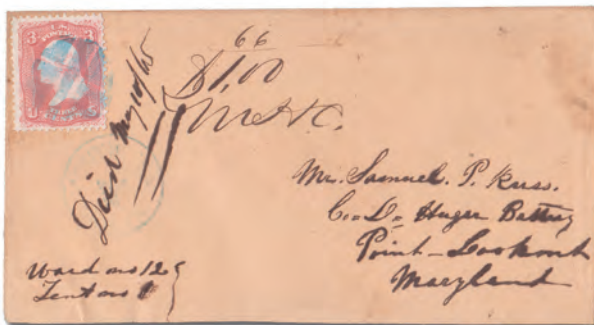 66
$1.00
Died May 10/65
Mr. Samuel. P. Russ.
Co. D. Huger Battery
Point-Lookout
Maryland
Ward no 12
Tent no 1
3 3